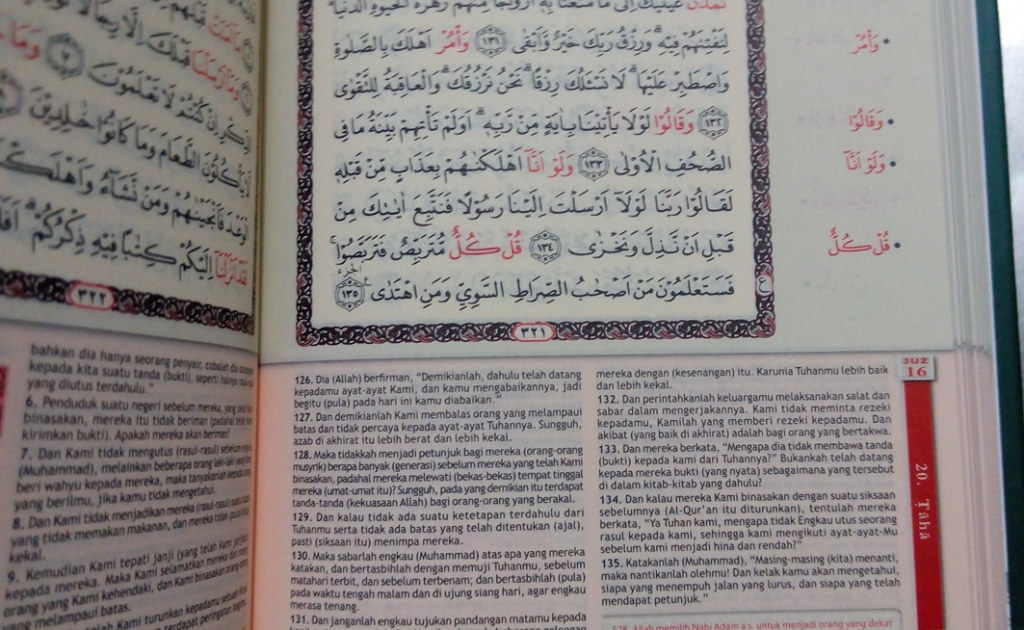 تَمُدَّنَّ عَيْنَيْكَ اِلٰى مَا مَتَّعْنَا بِهٖٓ اَزْوَاجًا مِّنْهُمْ زَهْرَةَ الْحَيٰوةِ الدُّنْيَا
لِنَفْتِنَهُمْ فِيْهِۗ وَرِزْقُ رَبِّكَ خَيْرٌ وَّاَبْقٰى ١٣١ وَأْمُرْ اَهْلَكَ بِالصَّلٰوةِ
وَاصْطَبِرْ عَلَيْهَاۗ لَا نَسْـَٔلُكَ رِزْقًاۗ نَحْنُ نَرْزُقُكَۗ وَالْعَاقِبَةُ لِلتَّقْوٰى
١٣٢ وَقَالُوْا لَوْلَا يَأْتِيْنَا بِاٰيَةٍ مِّنْ رَّبِّهٖۗ اَوَلَمْ تَأْتِهِمْ بَيِّنَةُ مَا فِى
الصُّحُفِ الْاُوْلٰى ١٣٣ وَلَوْ اَنَّآ اَهْلَكْنٰهُمْ بِعَذَابٍ مِّنْ قَبْلِهٖ
لَقَالُوْا رَبَّنَا لَوْلَآ اَرْسَلْتَ اِلَيْنَا رَسُوْلًا فَنَتَّبِعَ اٰيٰتِكَ مِنْ
قَبْلِ اَنْ نَّذِلَّ وَنَخْزٰى ١٣٤ قُلْ كُلٌّ مُّتَرَبِّصٌ فَتَرَبَّصُوْاۚ
فَسَتَعْلَمُوْنَ مَنْ اَصْحٰبُ الصِّرَاطِ السَّوِيِّ وَمَنِ اهْتَدٰى ١٣٥
الجزء
ع
٣٢١
• وَأْمُرْ
• وَقَالُوْا
• وَلَوْ اَنَّآ
• قُلْ كُلٌّ
قَبْلَكَ اِلَّا رِجَالًا
اِنْ كُنْتُمْ لَا تَعْلَمُوْنَ ٧
لَّا يَأْكُلُوْنَ الطَّعَامَ وَمَا كَانُوْا خٰلِدِيْنَ
الْوَعْدَ فَاَنْجَيْنٰهُمْ وَمَنْ نَّشَاۤءُ وَاَهْلَكْنَا
لَقَدْ اَنْزَلْنَآ اِلَيْكُمْ كِتٰبًا فِيْهِ ذِكْرُكُمْۗ اَفَلَا
٣٢٢
bahkan dia hanya seorang penyair, cobalah dia datangkan
kepada kita suatu tanda (bukti), seperti halnya rasul-rasul
yang diutus terdahulu."
6. Penduduk suatu negeri sebelum mereka, yang telah Kami
binasakan, mereka itu tidak beriman (padahal telah Kami
kirimkan bukti). Apakah mereka akan beriman?
7. Dan Kami tidak mengutus (rasul-rasul) sebelum engkau
(Muhammad), melainkan beberapa orang laki-laki yang Kami
beri wahyu kepada mereka, maka tanyakanlah kepada orang
yang berilmu, jika kamu tidak mengetahui.
8. Dan Kami tidak menjadikan mereka (rasul-rasul) suatu tubuh
yang tidak memakan makanan, dan mereka tidak (pula) hidup
kekal.
9. Kemudian Kami tepati janji (yang telah Kami janjikan)
kepada mereka. Maka Kami selamatkan mereka dan orang-
orang yang Kami kehendaki, dan Kami binasakan orang-orang
yang melampaui batas.
telah Kami turunkan kepadamu sebuah
terdapat peringatan
126. Dia (Allah) berfirman, "Demikianlah, dahulu telah datang
kepadamu ayat-ayat Kami, dan kamu mengabaikannya, jadi
begitu (pula) pada hari ini kamu diabaikan."
127. Dan demikianlah Kami membalas orang yang melampaui
batas dan tidak percaya kepada ayat-ayat Tuhannya. Sungguh,
azab di akhirat itu lebih berat dan lebih kekal.
128. Maka tidakkah menjadi petunjuk bagi mereka (orang-orang
musyrik) berapa banyak (generasi) sebelum mereka yang telah Kami
binasakan, padahal mereka melewati (bekas-bekas) tempat tinggal
mereka (umat-umat itu)? Sungguh, pada yang demikian itu terdapat
tanda-tanda (kekuasaan Allah) bagi orang-orang yang berakal.
129. Dan kalau tidak ada suatu ketetapan terdahulu dari
Tuhanmu serta tidak ada batas yang telah ditentukan (ajal),
pasti (siksaan itu) menimpa mereka.
130. Maka sabarlah engkau (Muhammad) atas apa yang mereka
katakan, dan bertasbihlah dengan memuji Tuhanmu, sebelum
matahari terbit, dan sebelum terbenam; dan bertasbihlah (pula)
pada waktu tengah malam dan di ujung siang hari, agar engkau
merasa tenang.
131. Dan janganlah engkau tujukan pandangan matamu kepada
mereka dengan (kesenangan) itu. Karunia Tuhanmu lebih baik
dan lebih kekal.
132. Dan perintahkanlah keluargamu melaksanakan salat dan
sabar dalam mengerjakannya. Kami tidak meminta rezeki
kepadamu, Kamilah yang memberi rezeki kepadamu. Dan
akibat (yang baik di akhirat) adalah bagi orang yang bertakwa.
133. Dan mereka berkata, "Mengapa dia tidak membawa tanda
(bukti) kepada kami dari Tuhannya?" Bukankah telah datang
kepada mereka bukti (yang nyata) sebagaimana yang tersebut
di dalam kitab-kitab yang dahulu?
134. Dan kalau mereka Kami binasakan dengan suatu siksaan
sebelumnya (Al-Qur'an itu diturunkan), tentulah mereka
berkata, "Ya Tuhan kami, mengapa tidak Engkau utus seorang
rasul kepada kami, sehingga kami mengikuti ayat-ayat-Mu
sebelum kami menjadi hina dan rendah?"
135. Katakanlah (Muhammad), "Masing-masing (kita) menanti,
maka nantikanlah olehmu! Dan kelak kamu akan mengetahui,
siapa yang menempuh jalan yang lurus, dan siapa yang telah
mendapat petunjuk."
528. Allah memilih Nabi Adam a.s. untuk menjadi orang yang dekat
JUZ
16
20. Ṭāhā